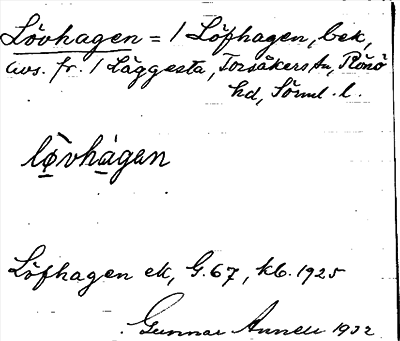 Lövhagen = 1 Löfhagen, bek,
avs. fr. 1 Läggesta, Torsåkers sn, Rönö
hd, Sörml. l.
lø̀vhágan
Löfhagen ek, G. 67, kb. 1925
Gunnar Annell 1932